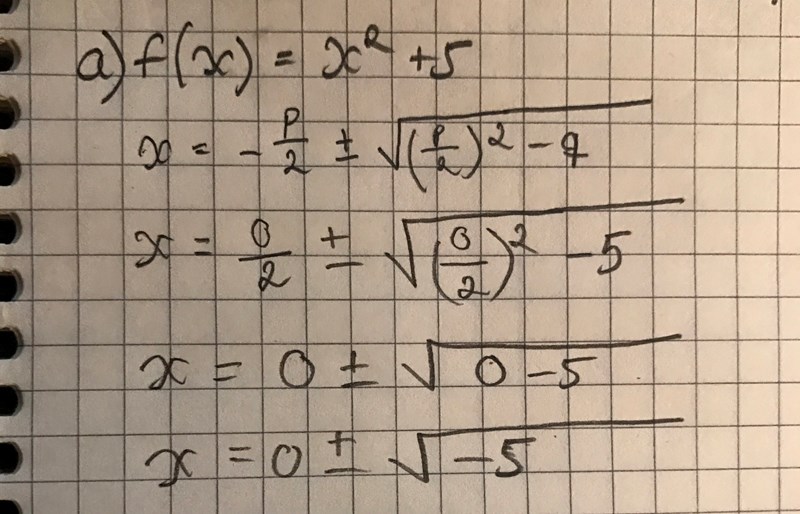 a) f(x) = x² + 5
x = - p/2 ± √((p/2)² - q)
x = 0/2 ± √((0/2)² - 5)
x = 0 ± √(0 - 5)
x = 0 ± √(-5)